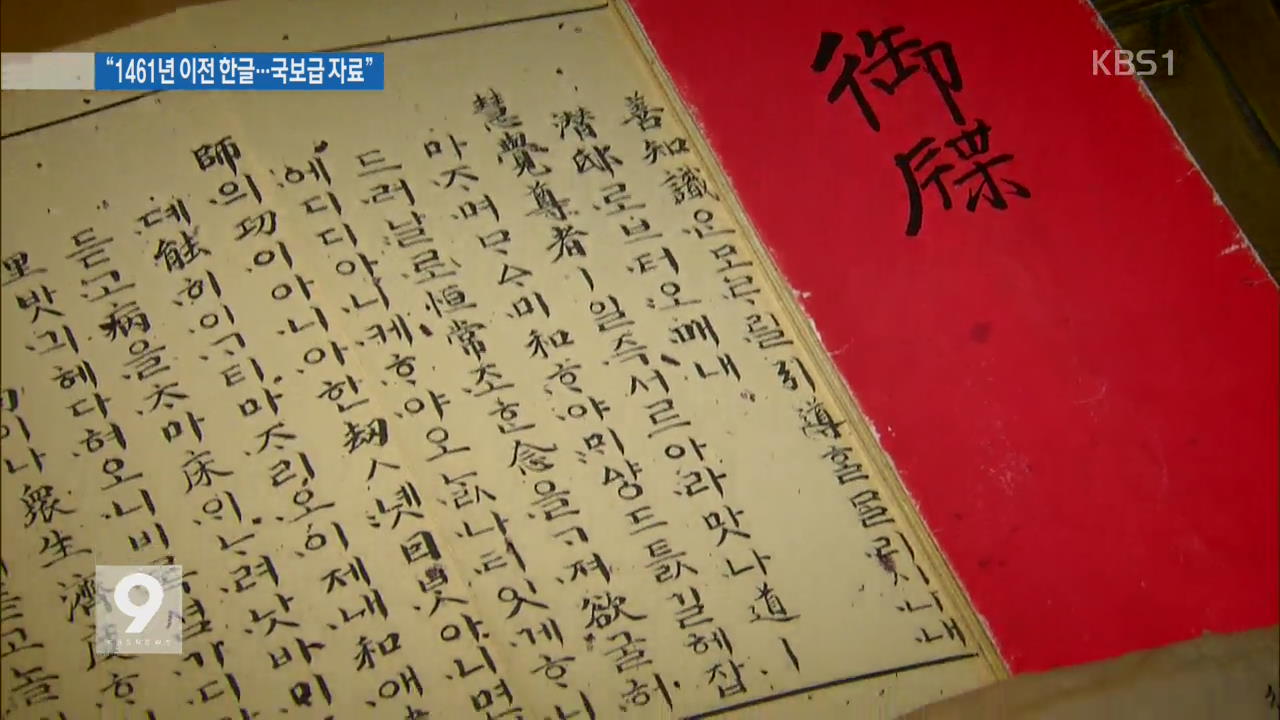 “1461년 이전 한글…국보급 자료”
KBS1
御牒
善知識은모
引導
시나내
潛邸로브터오매내
慧覺尊者ㅣ일즉서르아라맛나道ㅣ
마ᄌᆞ며ᄆᆞᅀᆞ미和ᄒᆞ야ᄆᆡ샹드틄길헤잡
드러날로恒常조ᄒᆞᆫ念을ᄀᆞ져欲굴허
에디디아니케ᄒᆞ야오ᄂᆞᆳ나리잇게ᄒᆞ니
師의功이아니아한劫ㅅ녯因곳아니면
뎨能히이ᄀᆞ티마ᄌᆞ리오이제내和애
듣고病을ᄎᆞ마床ᄋᆡᄂᆞ려낫바ᄆᆡ
里밧긔헤다혀오니비
이나衆生濟度ᄒᆞ
9
KBS NEWS